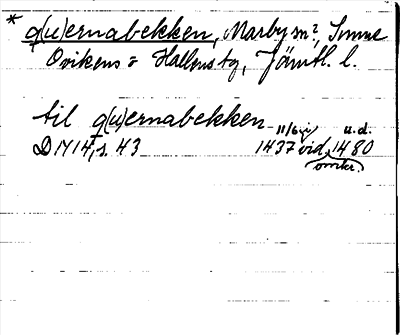 * q(u)ernabekken, Marby sn?, Sunne
Ovikens o Hallens tg, Jämtl. l.
til q(u)ernabekken
D 1714, s. 43 1437 11/6 vid. 1480 u.d.
omkr.